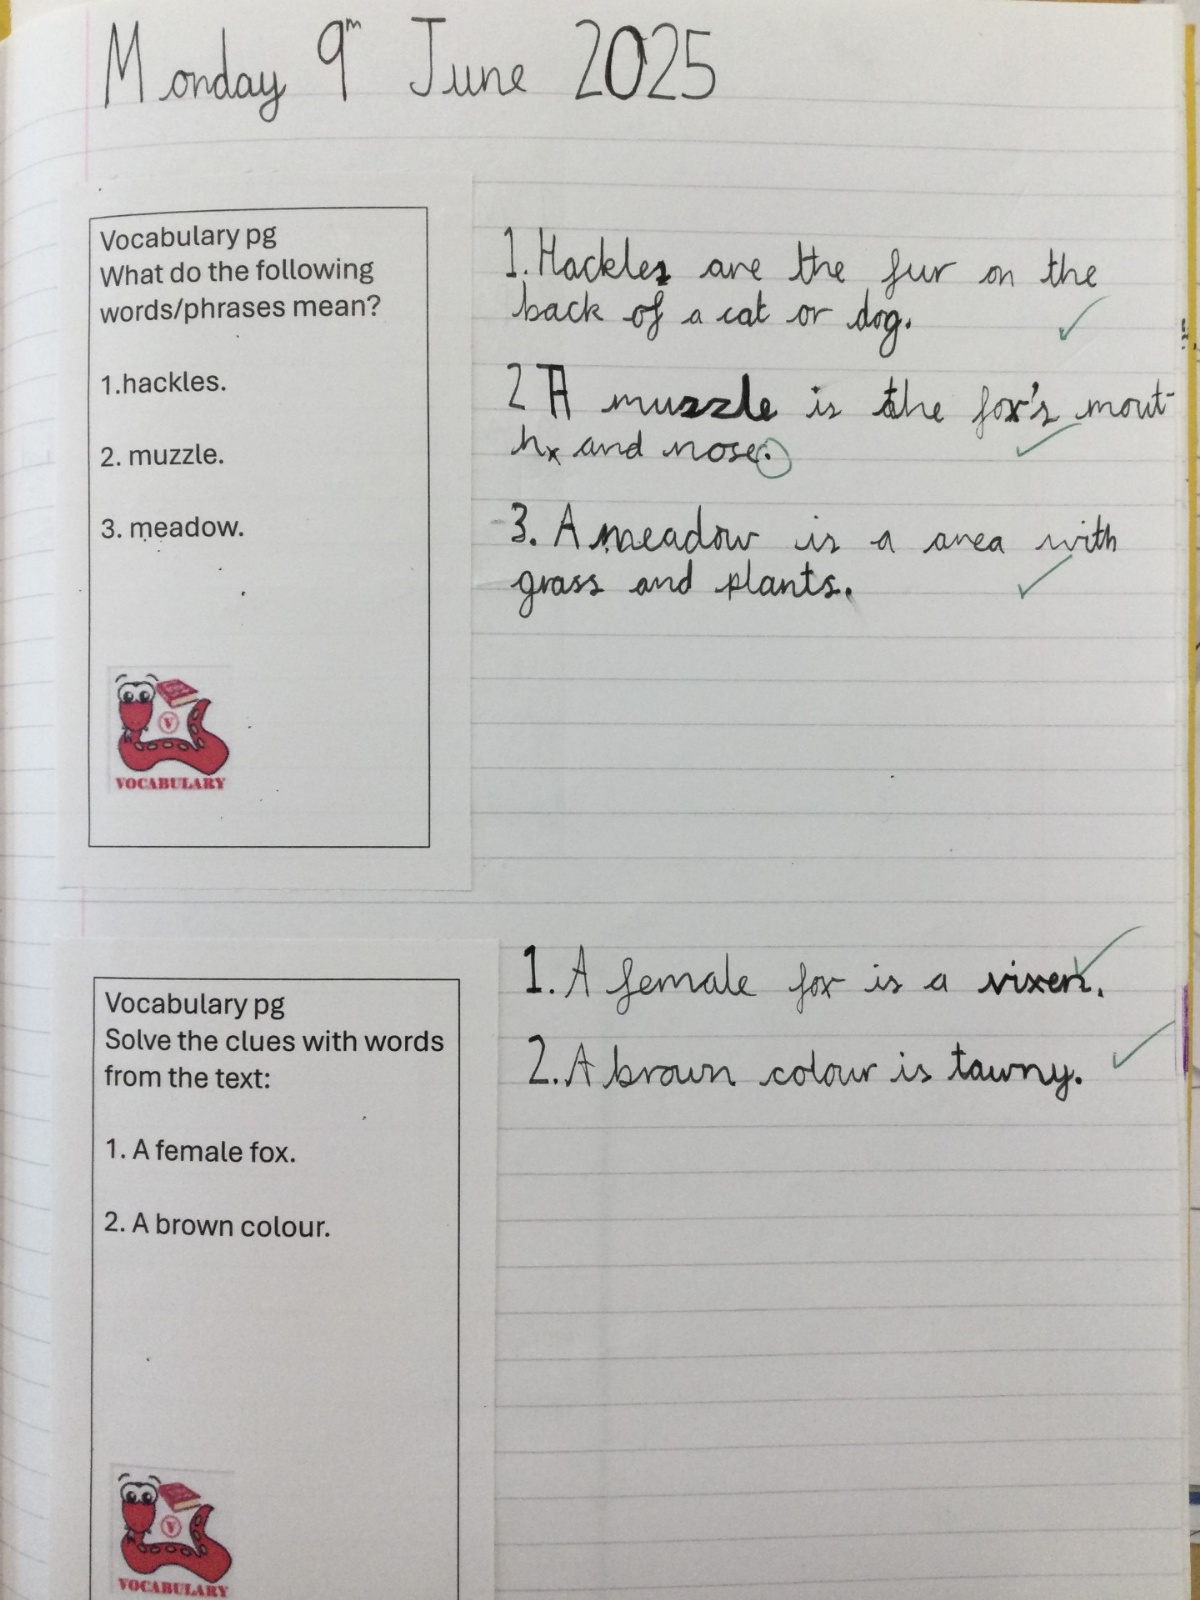 Monday 9th June 2025
Vocabulary pg
What do the following
words/phrases mean?
1.hackles.
2. muzzle.
3. meadow.
VOCABULARY
1. Hackles are the fur on the
back of a cat or dog.
2 A muzzle is the fox's mout-
h and nose.
3. A meadow is a area with
grass and plants.
Vocabulary pg
Solve the clues with words
from the text:
1. A female fox.
2. A brown colour.
VOCABULARY
1. A female fox is a vixen.
2. A brown colour is tawny.